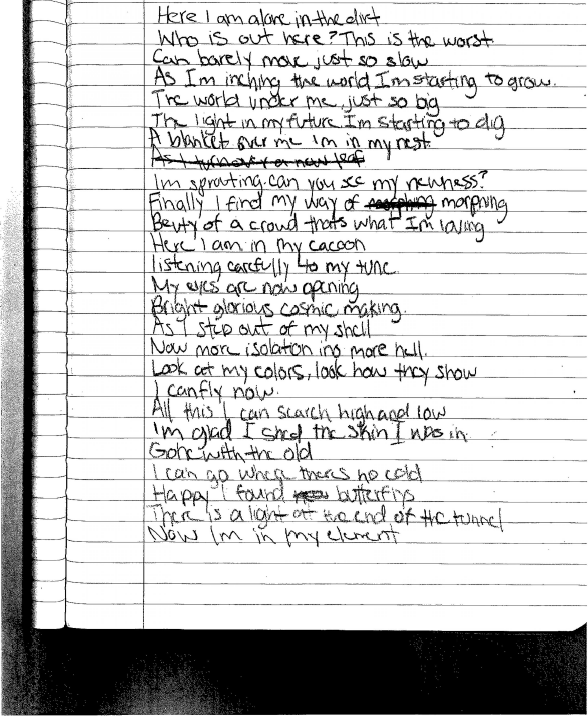 Here I am alone in the dirt
Who is out here? This is the worst
Can barely move, just so slow
As I'm inching the world I'm starting to grow.
The world under me, just so big
The light in my future I'm starting to dig
A blanket over me I'm in my nest
As I turnover a new leaf
Im sprouting. can you see my newness?
Finally I find my way of morphing
Beuty of a croud thats what I'm loving
Here I am in my cacoon
listening carefully to my tune
My eyes are now opening
Bright glorious cosmic making.
As I step out of my shell
Now more isolation ino more hell.
Look at my colors, look how they show
I canfly now.
All this I can search high and low
I'm glad I shed the skin I was in
Gone with the old
I can go where theres no cold
Happy I found butterflys
There is a light at the end of the tunnel
Now I'm in my element